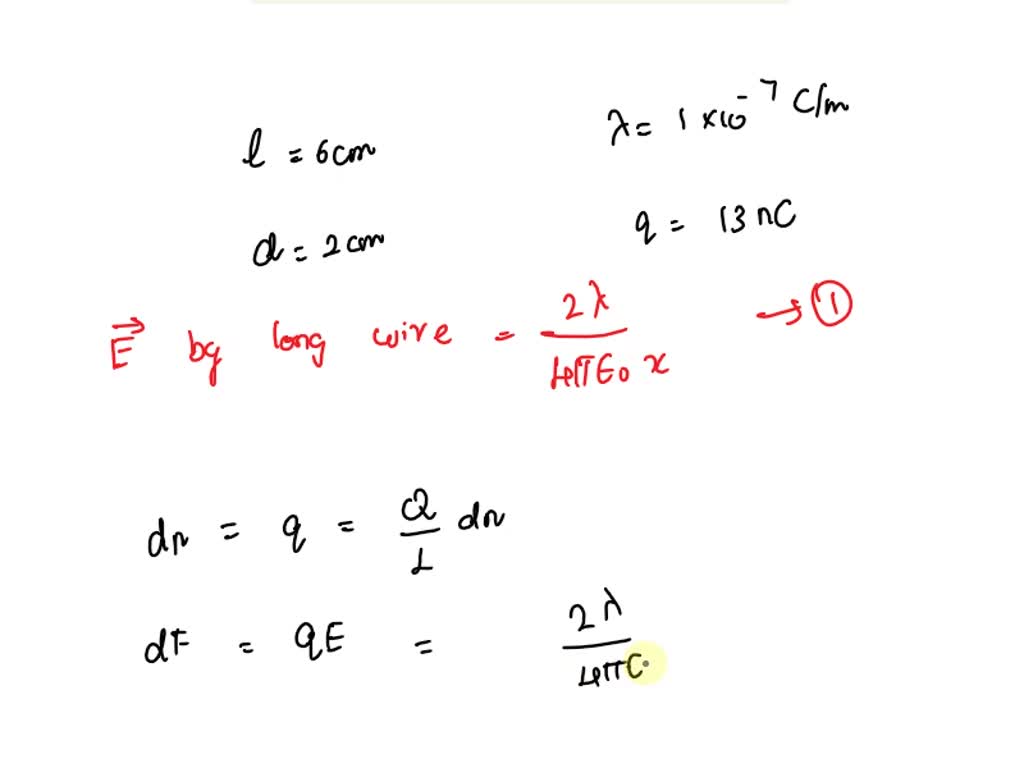 l = 6cm
λ = 1 × 10⁻⁷ C/m
d = 2cm
q = 13 nC
E⃗ by long wire = 2λ / 4πϵ₀ x → ①
dn = q = Q / L dn
dF = qE = 2λ / 4πC